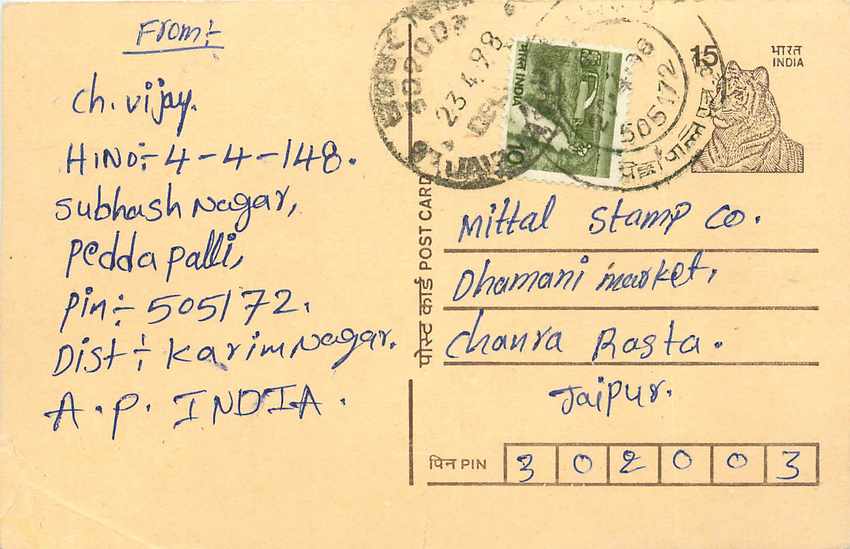 From:-
Ch. Vijay.
H.NO:- 4-4-148.
Subhash Nagar,
Peddapalli,
Pin:- 505172.
Dist:- Karimnagar.
A.P. INDIA.
23.4.98
भारत INDIA
10
505172
15
भारत
INDIA
पोस्ट कार्ड POST CARD
Mittal Stamp Co.
Dhamani market,
Chanra Rasta.
Jaipur.
पिन PIN 302003